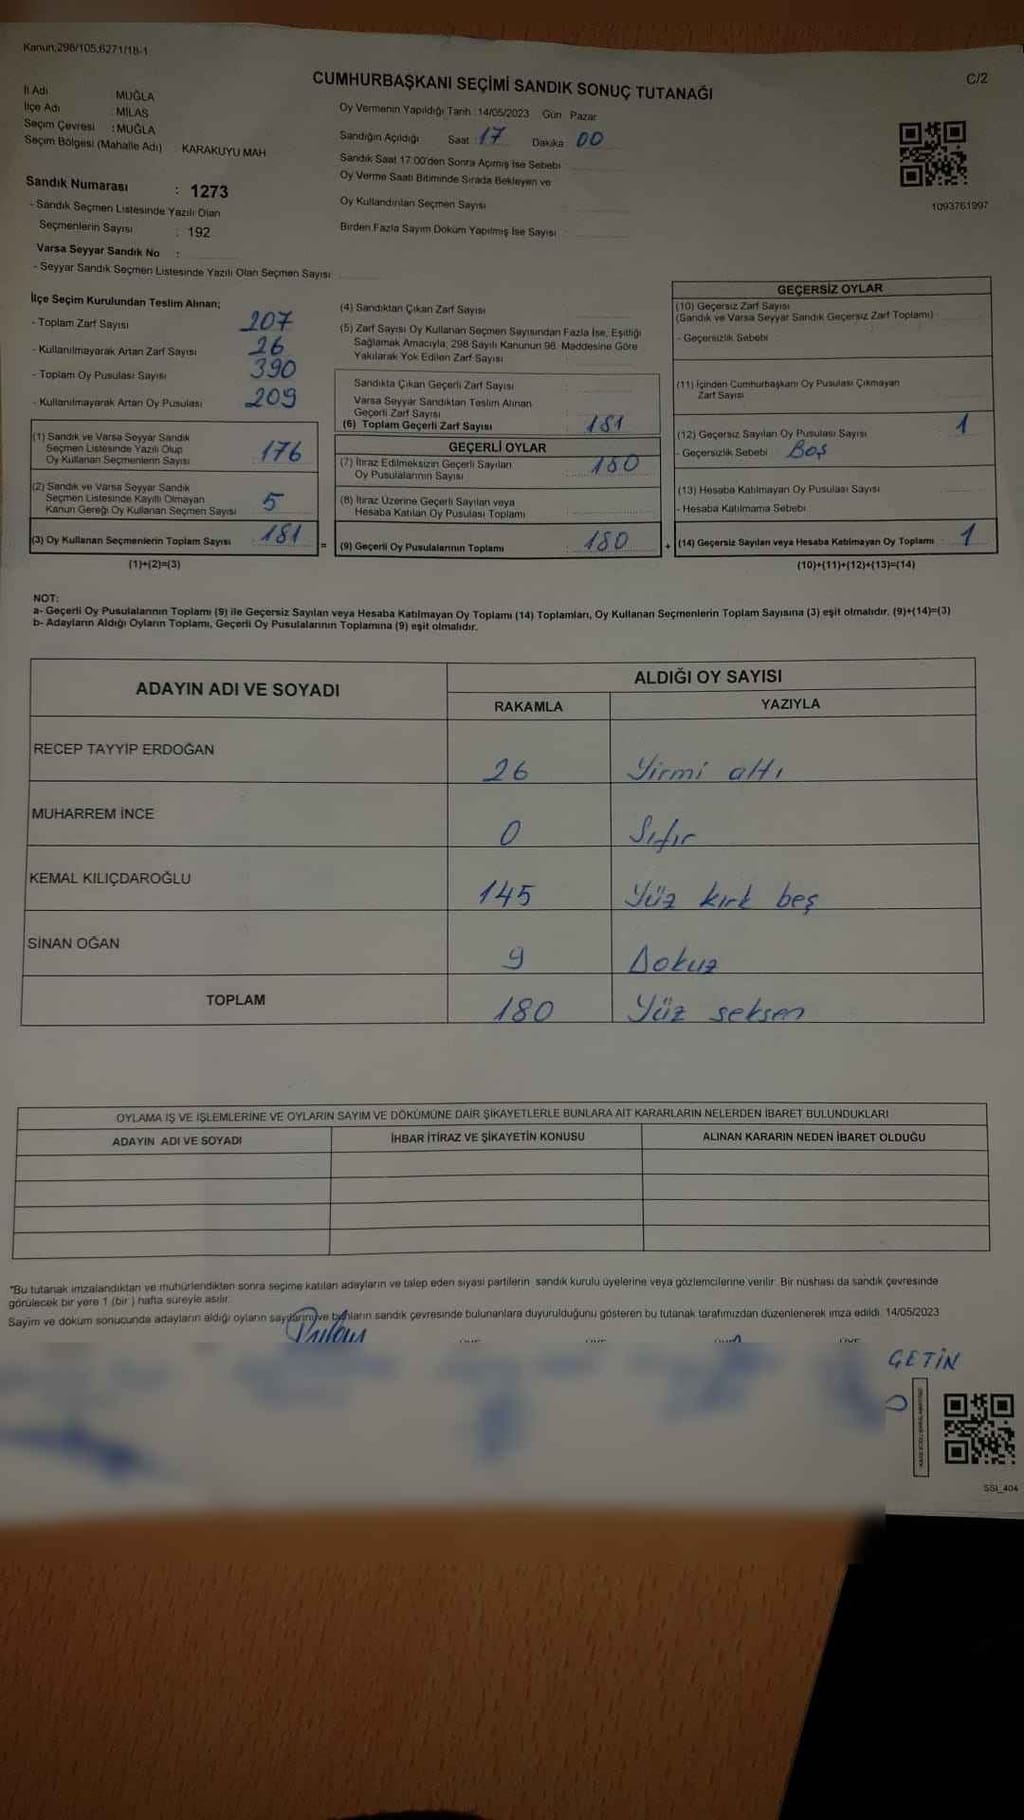 Kanun.298/105;6271/18-1
CUMHURBAŞKANI SEÇİMİ SANDIK SONUÇ TUTANAĞI
C/2
İl Adı MUĞLA
İlçe Adı MİLAS
Seçim Çevresi : MUĞLA
Seçim Bölgesi (Mahalle Adı) KARAKUYU MAH
Sandık Numarası : 1273
- Sandık Seçmen Listesinde Yazılı Olan
Seçmenlerin Sayısı : 192
Varsa Seyyar Sandık No :
- Seyyar Sandık Seçmen Listesinde Yazılı Olan Seçmen Sayısı:
Oy Vermenin Yapıldığı Tarih :14/05/2023 Gün Pazar
Sandığın Açıldığı Saat :17 Dakika 00
Sandık Saat 17:00'den Sonra Açımış İse Sebebi
Oy Verme Saati Bitiminde Sırada Bekleyen ve
Oy Kullandırılan Seçmen Sayısı
Birden Fazla Sayım Döküm Yapılmış İse Sayısı :
1093761997
İlçe Seçim Kurulundan Teslim Alınan;
- Toplam Zarf Sayısı 207
- Kullanılmayarak Artan Zarf Sayısı 26
- Toplam Oy Pusulası Sayısı 390
- Kullanılmayarak Artan Oy Pusulası 209
(1) Sandık ve Varsa Seyyar Sandık
Seçmen Listesinde Yazılı Olup
Oy Kullanan Seçmenlerin Sayısı 176
(2) Sandık ve Varsa Seyyar Sandık
Seçmen Listesinde Kayıtlı Olmayan
Kanun Gereği Oy Kullanan Seçmen Sayısı 5
(3) Oy Kullanan Seçmenlerin Toplam Sayısı : 181
(1)+(2)=(3)
(4) Sandıktan Çıkan Zarf Sayısı :
(5) Zarf Sayısı Oy Kullanan Seçmen Sayısından Fazla İse, Eşitliği
Sağlamak Amacıyla, 298 Sayılı Kanunun 98. Maddesine Göre
Yakılarak Yok Edilen Zarf Sayısı
Sandıkta Çıkan Geçerli Zarf Sayısı
Varsa Seyyar Sandıktan Teslim Alınan
Geçerli Zarf Sayısı
(6) Toplam Geçerli Zarf Sayısı : 181
GEÇERLİ OYLAR
(7) İtiraz Edilmeksizin Geçerli Sayılan
Oy Pusulalarının Sayısı : 180
(8) İtiraz Üzerine Geçerli Sayılan veya
Hesaba Katılan Oy Pusulası Toplamı
= (9) Geçerli Oy Pusulalarının Toplamı : 180
GEÇERSİZ OYLAR
(10) Geçersiz Zarf Sayısı
(Sandık ve Varsa Seyyar Sandık Geçersiz Zarf Toplamı) :
- Geçersizlik Sebebi
(11) İçinden Cumhurbaşkanı Oy Pusulası Çıkmayan
Zarf Sayısı
(12) Geçersiz Sayılan Oy Pusulası Sayısı 1
- Geçersizlik Sebebi : Boş
(13) Hesaba Katılmayan Oy Pusulası Sayısı :
- Hesaba Katılmama Sebebi
+ (14) Geçersiz Sayılan veya Hesaba Katılmayan Oy Toplamı : 1
(10)+(11)+(12)+(13)=(14)
NOT:
a- Geçerli Oy Pusulalarının Toplamı (9) ile Geçersiz Sayılan veya Hesaba Katılmayan Oy Toplamı (14) Toplamları, Oy Kullanan Seçmenlerin Toplam Sayısına (3) eşit olmalıdır. (9)+(14)=(3)
b- Adayların Aldığı Oyların Toplamı, Geçerli Oy Pusulalarının Toplamına (9) eşit olmalıdır.
ADAYIN ADI VE SOYADI
ALDIĞI OY SAYISI
RAKAMLA YAZIYLA
RECEP TAYYİP ERDOĞAN 26 Yirmi altı
MUHARREM İNCE 0 Sıfır
KEMAL KILIÇDAROĞLU 145 Yüz kırk beş
SİNAN OĞAN 9 Dokuz
TOPLAM 180 Yüz seksen
OYLAMA İŞ VE İŞLEMLERİNE VE OYLARIN SAYIM VE DÖKÜMÜNE DAİR ŞİKAYETLERLE BUNLARA AİT KARARLARIN NELERDEN İBARET BULUNDUKLARI
ADAYIN ADI VE SOYADI İHBAR İTİRAZ VE ŞİKAYETİN KONUSU ALINAN KARARIN NEDEN İBARET OLDUĞU
*Bu tutanak imzalandıktan ve mühürlendikten sonra seçime katılan adayların ve talep eden siyasi partilerin sandık kurulu üyelerine veya gözlemcilerine verilir. Bir nüshası da sandık çevresinde
görülecek bir yere 1 (bir) hafta süreyle asılır.
Sayım ve döküm sonucunda adayların aldığı oyların sayılarını ve bunların sandık çevresinde bulunanlara duyurulduğunu gösteren bu tutanak tarafımızdan düzenlenerek imza edildi. 14/05/2023
ÇETİN
SSI_404